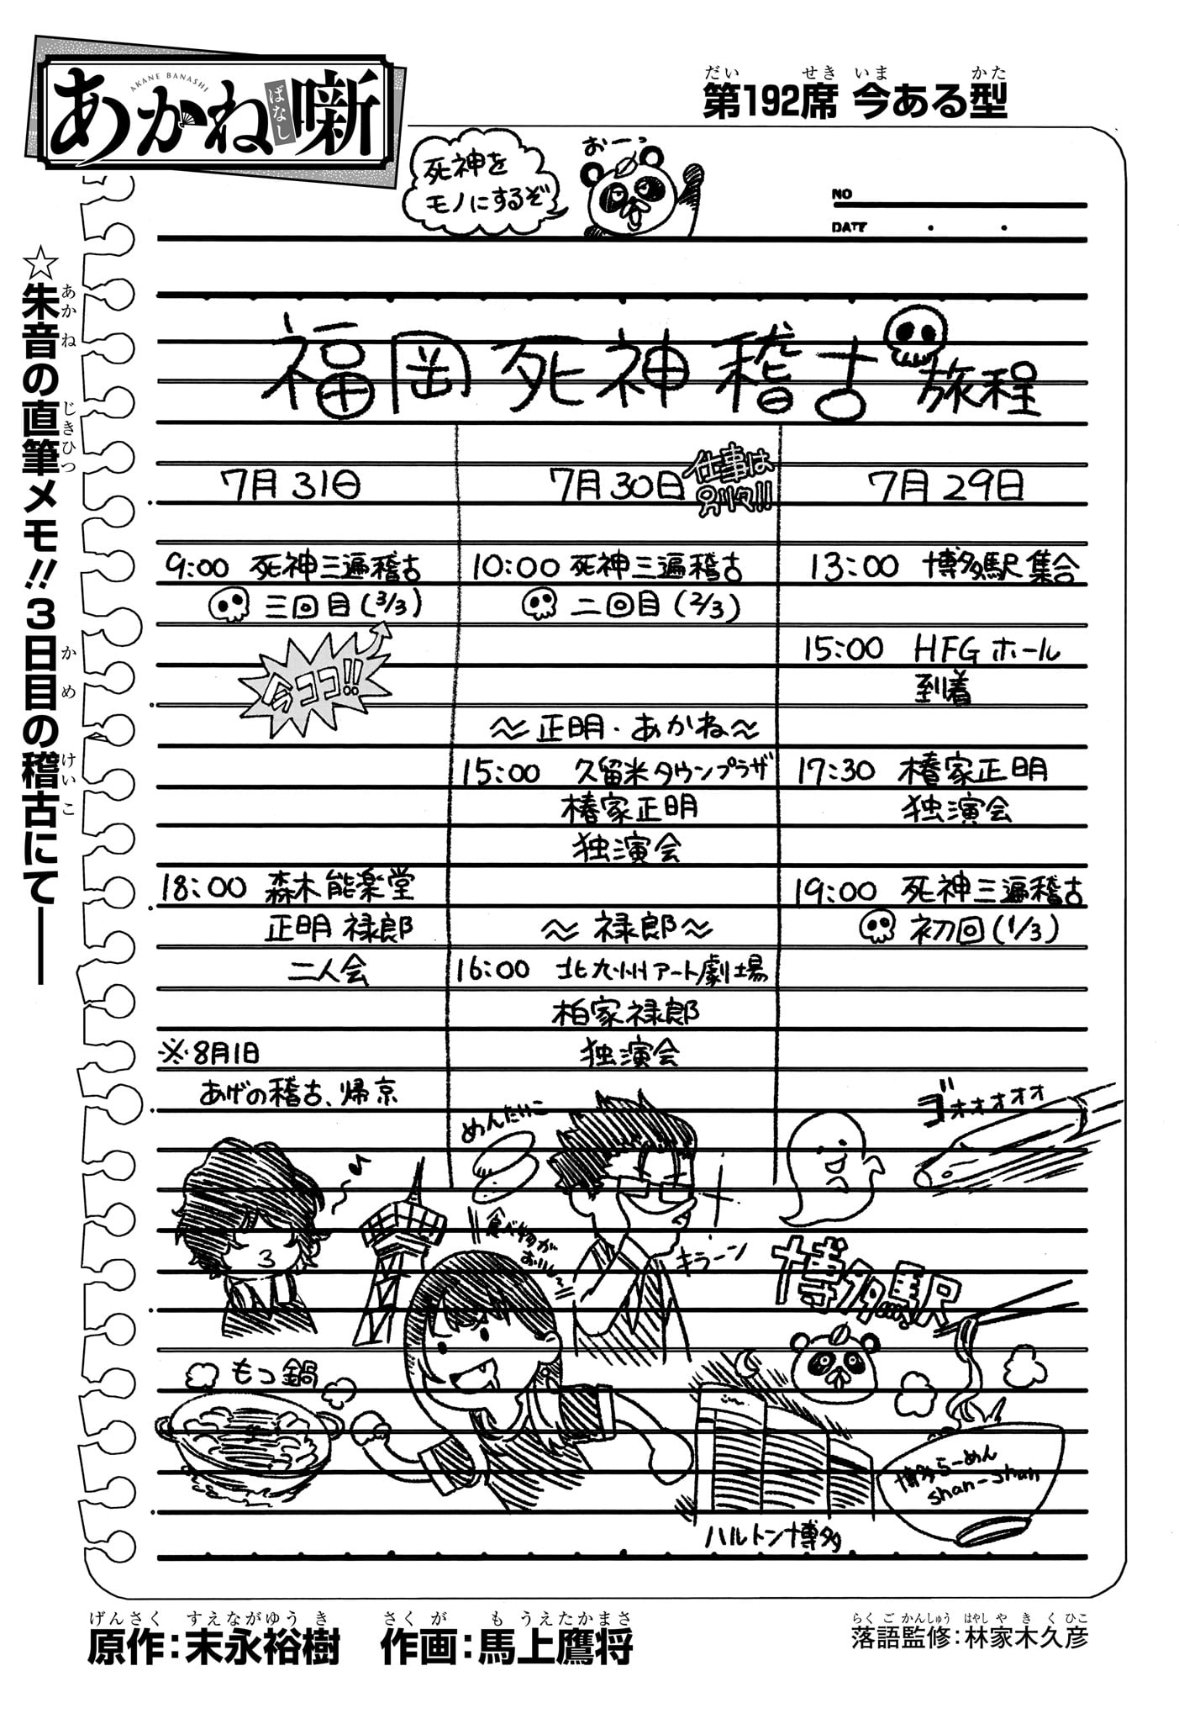 あかね噺
ばなし
AKANE BANASHI
第192席 今ある型
だい せき いま かた
死神を
モノにするぞ
おーっ
NO
DATE
☆朱音の直筆メモ!!3日目の稽古にて――
あかね じきひつ かめ けいこ
福岡死神稽古旅程
7月29日
13:00 博多駅集合
15:00 HFGホール
到着
17:30 椿家正明
独演会
19:00 死神三遍稽古
初回(1/3)
7月30日
仕事は
別々!!
10:00 死神三遍稽古
二回目(2/3)
～正明・あかね～
15:00 久留米タウンプラザ
椿家正明
独演会
～禄郎～
16:00 北九州アート劇場
柏家禄郎
独演会
7月31日
9:00 死神三遍稽古
三回目(3/3)
今ココ!!
18:00 森木能楽堂
正明 禄郎
二人会
※8月1日
あげの稽古、帰京
ゴォオオオオ
めんたいこ
キラーン
博多駅
食べ物が
おいしー
もつ鍋
博多らーめん
shan-shan
ハルトン博多
げんさく すえながゆうき
原作:末永裕樹
さくが もうえたかまさ
作画:馬上鷹将
らくごかんしゅう はやしやきくひこ
落語監修:林家木久彦